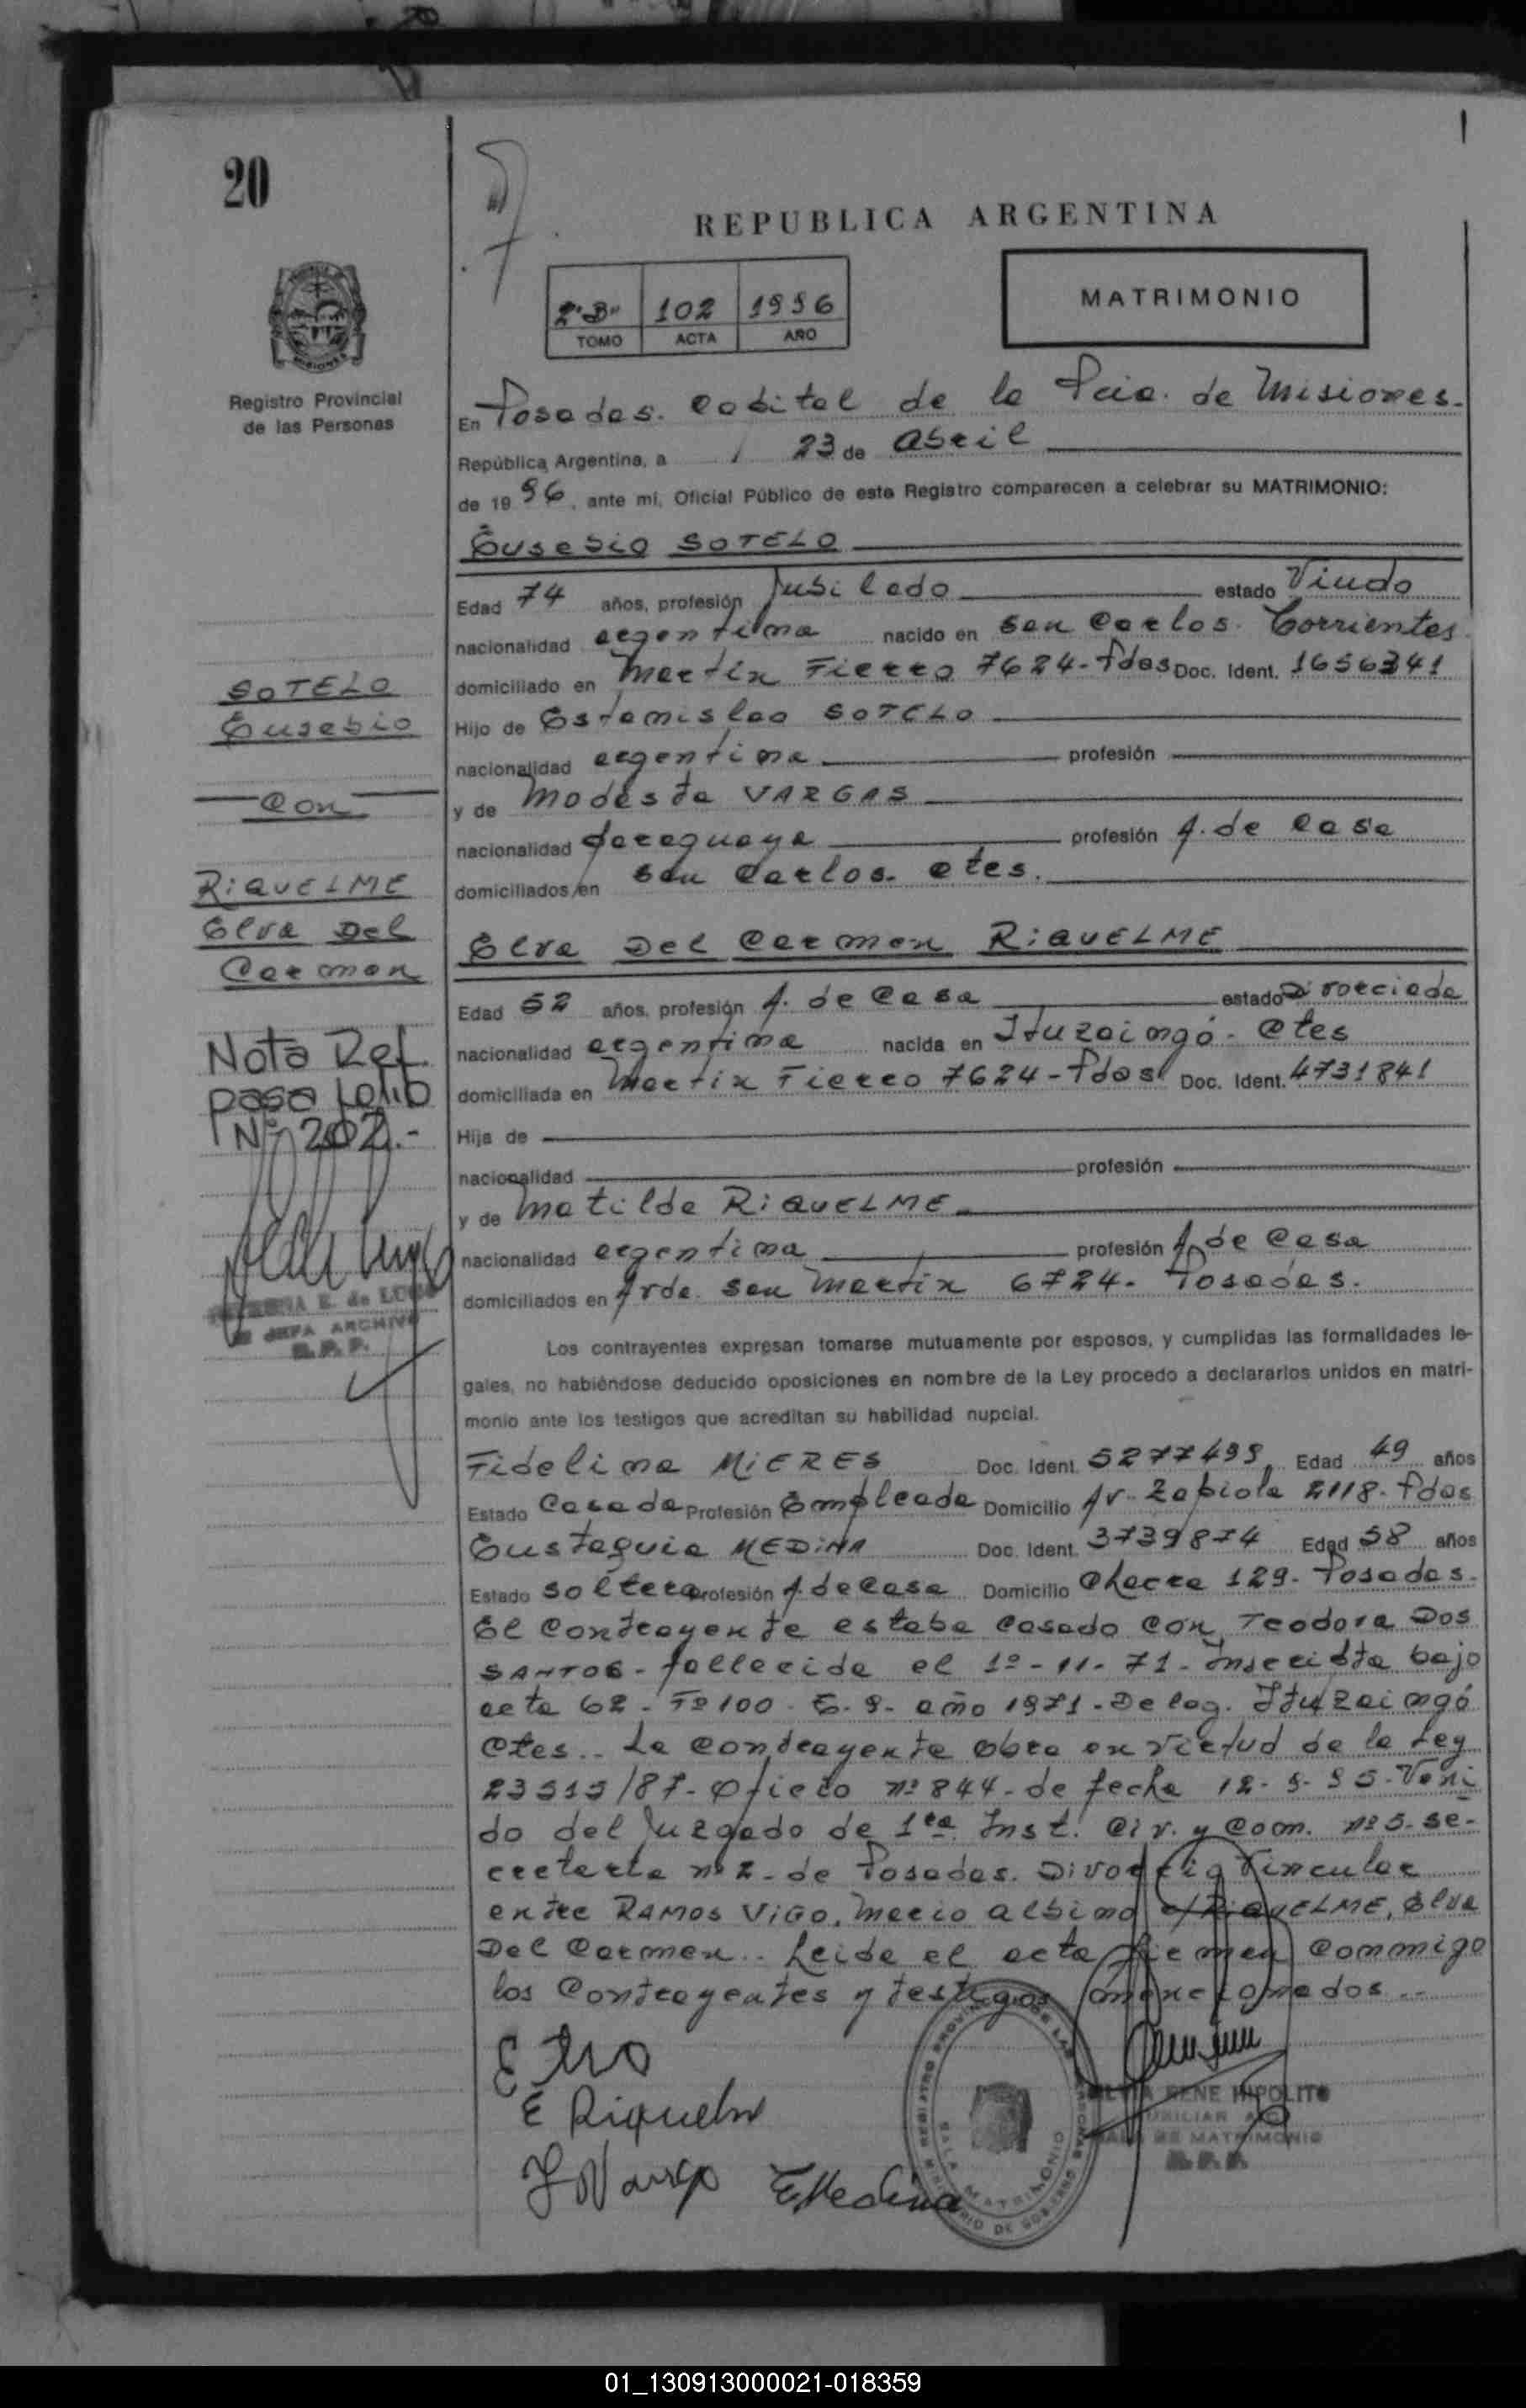 20
REPUBLICA ARGENTINA
2"B" 102 1996
TOMO ACTA AÑO
MATRIMONIO
MISIONES
Registro Provincial
de las Personas
En Posadas. Capital de la Pcia. de Misiones.
República Argentina, a 23 de Abril
de 1996, ante mí, Oficial Público de este Registro comparecen a celebrar su MATRIMONIO:
Eusebio SOTELO
Edad 74 años, profesión Jubilado estado Viudo
nacionalidad argentina nacido en San Carlos. Corrientes.
domiciliado en Martín Fierro 7624-Pdas Doc. Ident. 1656341
Hijo de Estanislao SOTELO
nacionalidad argentina profesión
y de Modesta VARGAS
nacionalidad paraguaya profesión A. de Casa
domiciliados en San Carlos. Ctes.
SOTELO
Eusebio
Con
RiQUELME
Elva Del
Carmen
Elva Del Carmen RiQUELME
Edad 52 años, profesión A. de Casa estado Divorciada
nacionalidad argentina nacida en Ituzaingó - Ctes
domiciliada en Martín Fierro 7624-Pdas Doc. Ident. 4731841
Hija de
nacionalidad profesión
y de Matilde RiQUELME
nacionalidad argentina profesión A. de Casa
domiciliados en Avda. San Martín 6724- Posadas.
Nota Ref.
pasa folio
Nº 202.-
E. de LUGO
JEFA ARCHIVO
R.P.P.
Los contrayentes expresan tomarse mutuamente por esposos, y cumplidas las formalidades le-
gales, no habiéndose deducido oposiciones en nombre de la Ley procedo a declararlos unidos en matri-
monio ante los testigos que acreditan su habilidad nupcial.
Fidelina MiERES Doc. Ident. 5277499 Edad 49 años
Estado Casada Profesión Empleada Domicilio Av. Zapiola 2118-Pdas
Eustaquia MEDiNA Doc. Ident. 3739874 Edad 58 años
Estado soltera Profesión A. de Casa Domicilio Chacra 129- Posadas-
El Contrayente estaba Casado Con Teodora Dos
SANTOS - fallecida el 1º-11-71- Inscripta bajo
acta 62 - Fº 100 - año 1971- Deleg. Ituzaingó
Ctes.. La Contrayente obra en virtud de la Ley
23515/87- Oficio nº 844- de fecha Veni
do del Juzgado de 1era Inst. Civ. y Com. nº 5- se-
cretaría nº 2- de Posadas. Divorcio Vincular
entre RAMOS ViGO, Mario Albino c/ RiQUELME, Elva
Del Carmen.. Leida el acta firman Conmigo
los Contrayentes y testigos mencionados..
E Riquelm
E Medina
REGISTRO PROVINCIAL DE LAS PERSONAS
SALA MATRIMONIO
MINISTERIO DE GOBIERNO
RENE HIPOLITO
AUXILIAR
SALA DE MATRIMONIO
R.P.P.
01_130913000021-018359